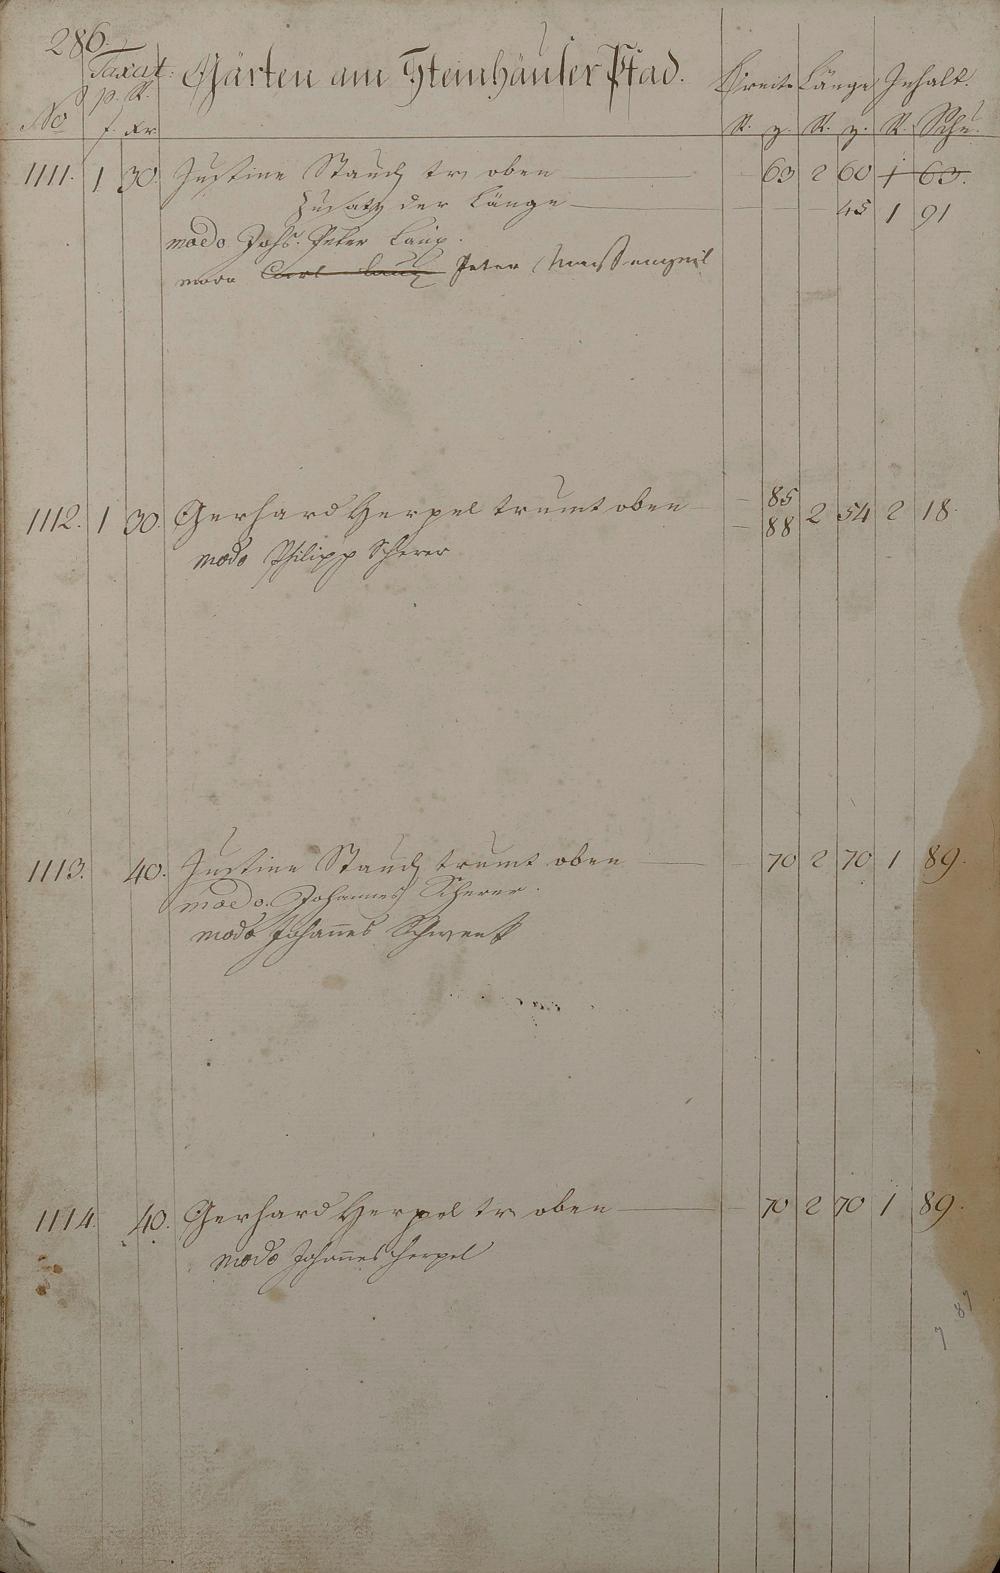 286.
Taxat: Gärten am Steinhäuser Pfad. Breite Länge Inhalt.
No p. R. f. xr. R. z. R. z. R. Schu.
1111. 1 30. Justine Stauch tr oben 63 2 60 1 63.
Zusatz der Länge 45 1 91
modo Johs. Peter Laux.
modo Carl Laux Peter
1112. 1 30. Gerhard Herpel trumt oben 85 88 2 54 2 18.
modo Philipp Scherer
1113. 40. Justine Stauch trumt oben 70 2 70 1 89.
modo. Johannes Scherer.
modo Johannes Schwenk
1114. 40. Gerhard Herpel tr oben 70 2 70 1 89.
modo Johannes Herpel
7 87